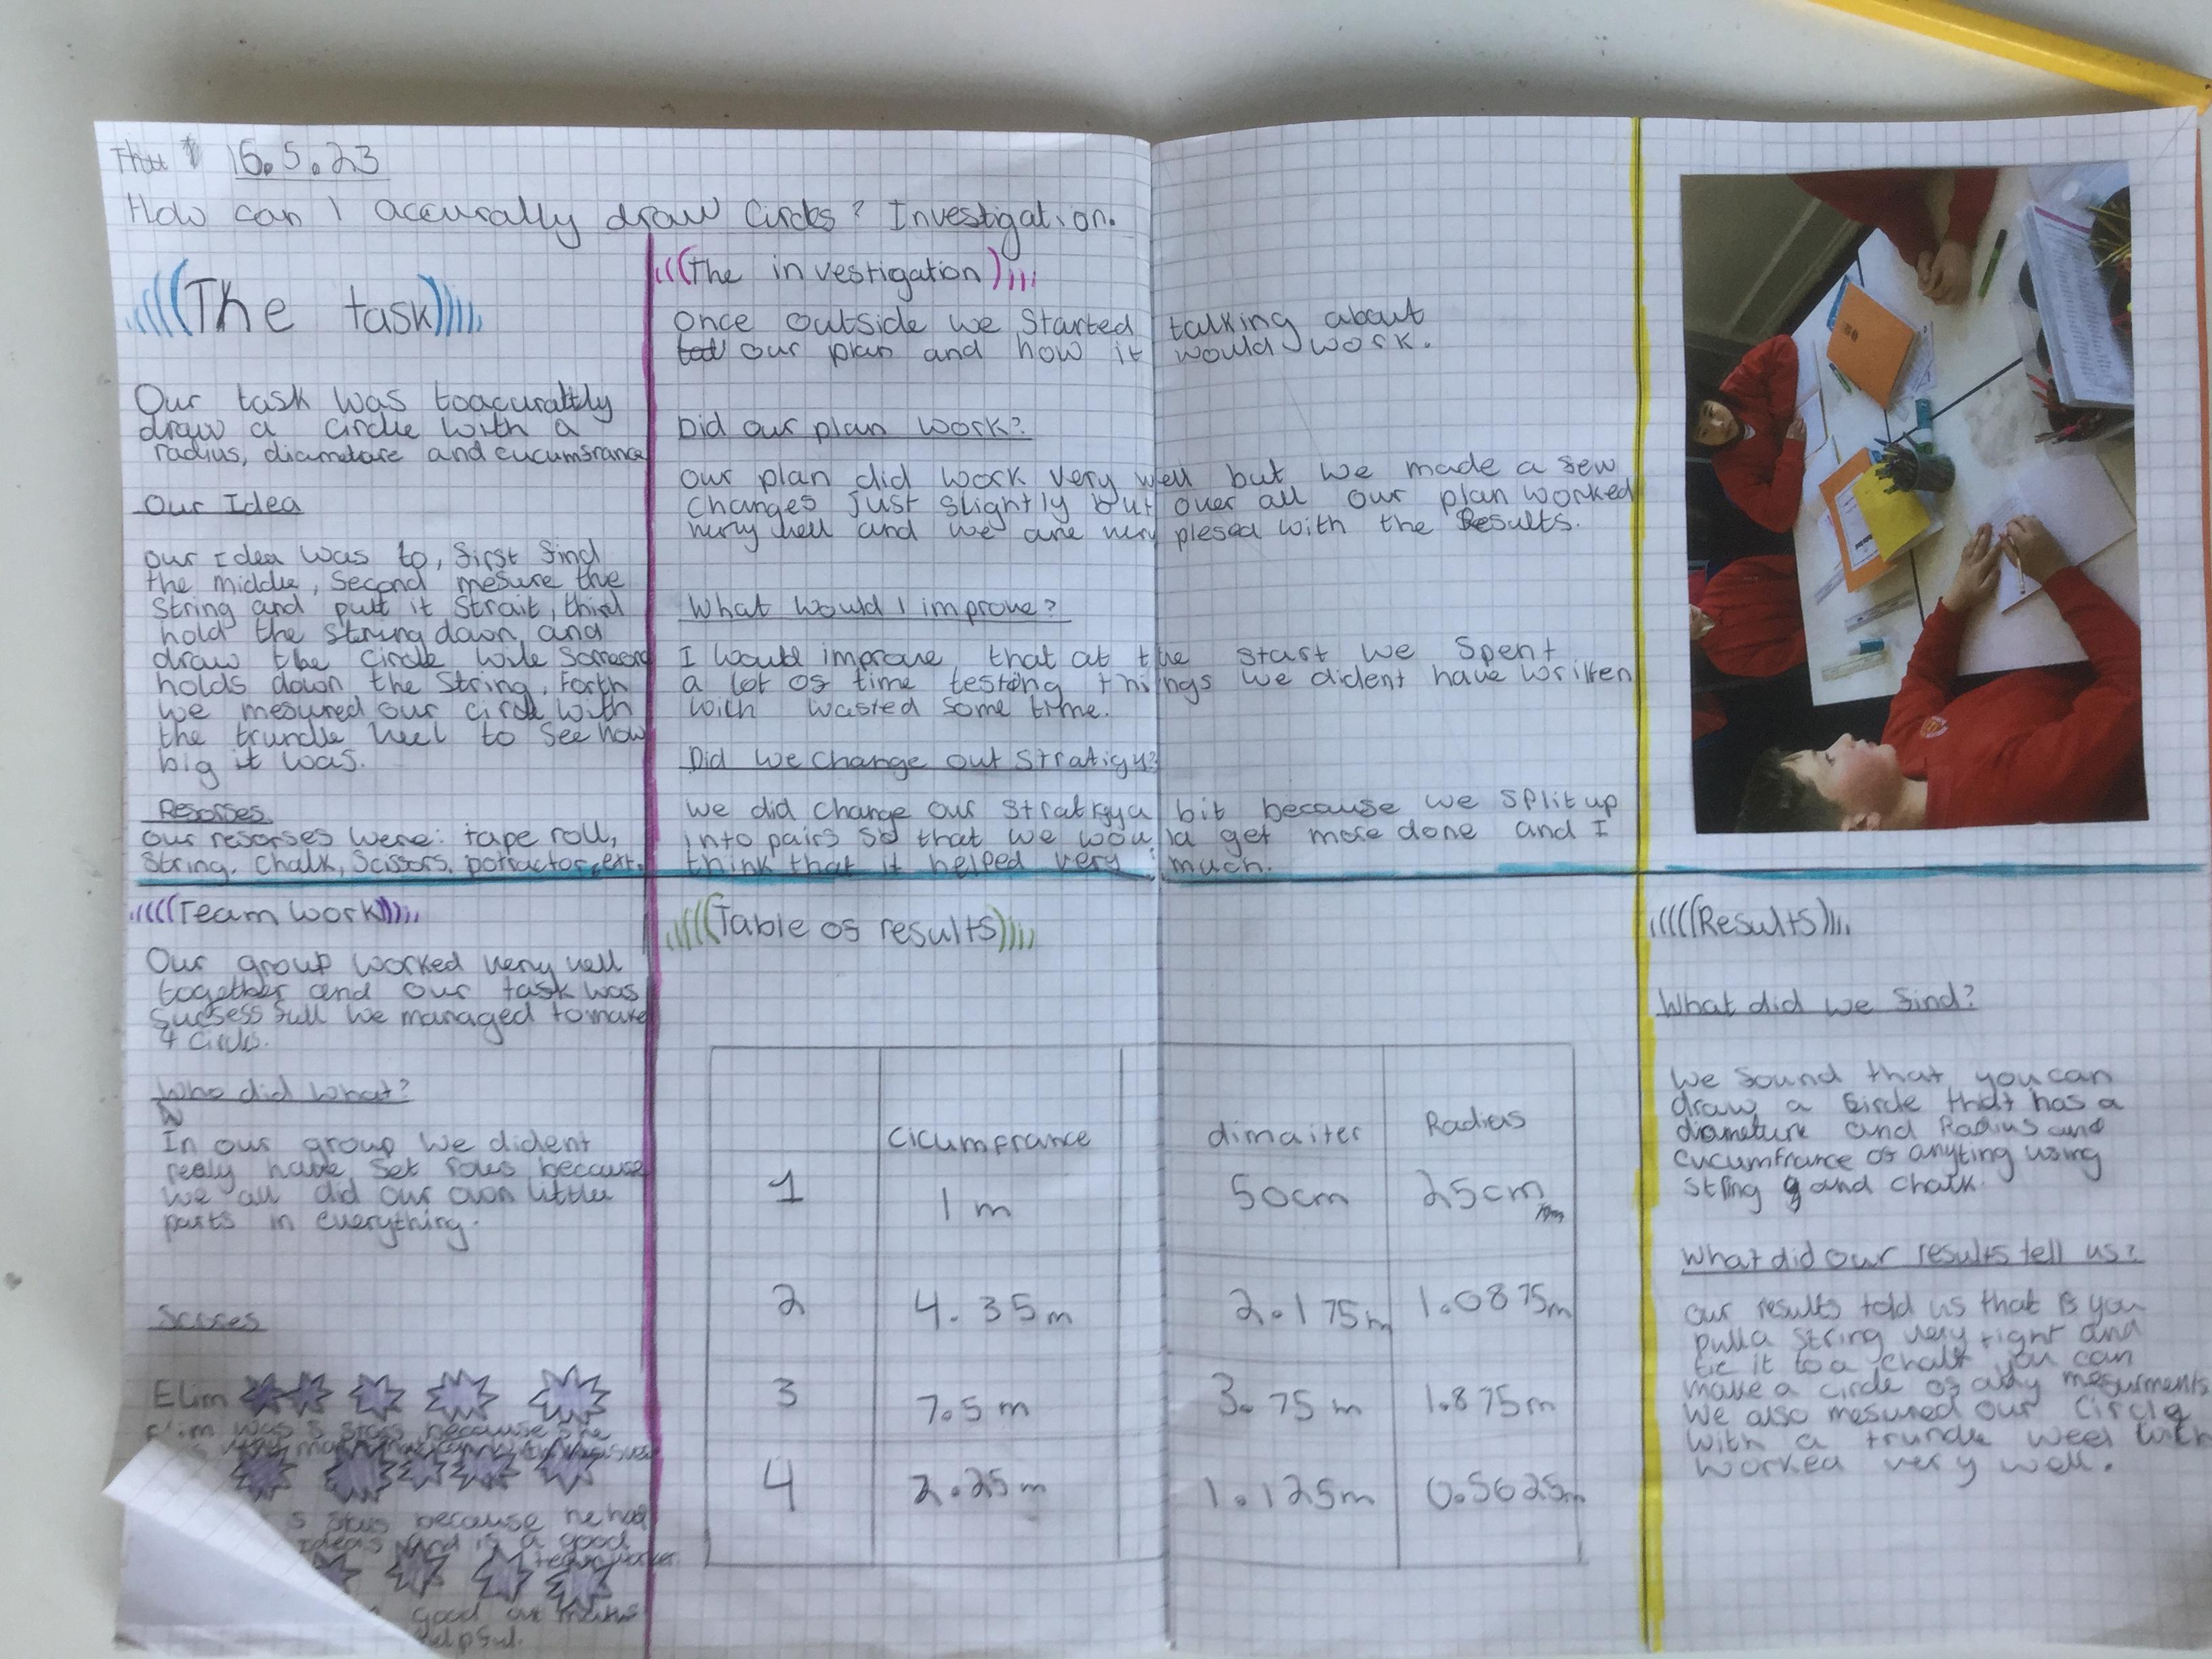 16.5.23
How can I accurally draw Circls? Investigation.
The task
Our task was toacurattly
draw a circle with a
radius, diamatare and cucumfrance
Our Idea
Our Idea was to, first find
the middle, Second mesure the
String and putt it Strait, third
hold the String down and
draw the Circle wile Someone
holds down the String, Forth
we mesured our circle with
the trundle weel to See how
big it was.
Resorses
Our resorses were: tape roll,
String, Chalk, Scissors, potractor, ext.
The investigation
Once outside we Started talking about
our plan and how it would work.
Did our plan work?
Our plan did work very well but we made a few
Changes Just Slightly but over all our plan worked
very well and we are very plesed with the Results.
What Would I improve?
I Would improve, that at the start we Spent
a lot of time testing things we dident have written
with wasted some time.
Did we change out Stratigy?
We did change our Stratigy a bit because we Split up
into pairs so that we would get more done and I
think that it helped very much.
Team work
Our group worked very well
together and our task was
Sucsessfull we managed to make
4 Circls.
Who did What?
In our group we dident
realy have Set roles because
we all did our own little
parts in everything.
Scores
Elim
Elim was 5 Stars because
5 Stars because he had
ideas and is a good
teamworker
good at maths
helpful.
Table of results
Cicumfrance dimaiter Radius
1 1 m 50cm 25cm
2 4.35m 2.175m 1.0875m
3 7.5m 3.75m 1.875m
4 2.25m 1.125m 0.5625m
Results
What did we find?
We found that you can
draw a Circle that has a
diameture and Radius and
cucumfrance of anyting using
String and chalk.
What did our results tell us?
Our results told us that if you
pull a String very tight and
tie it to a chalk you can
make a circle of any mesurments
We also mesured our Circle
with a trundle weel with
worked very well.